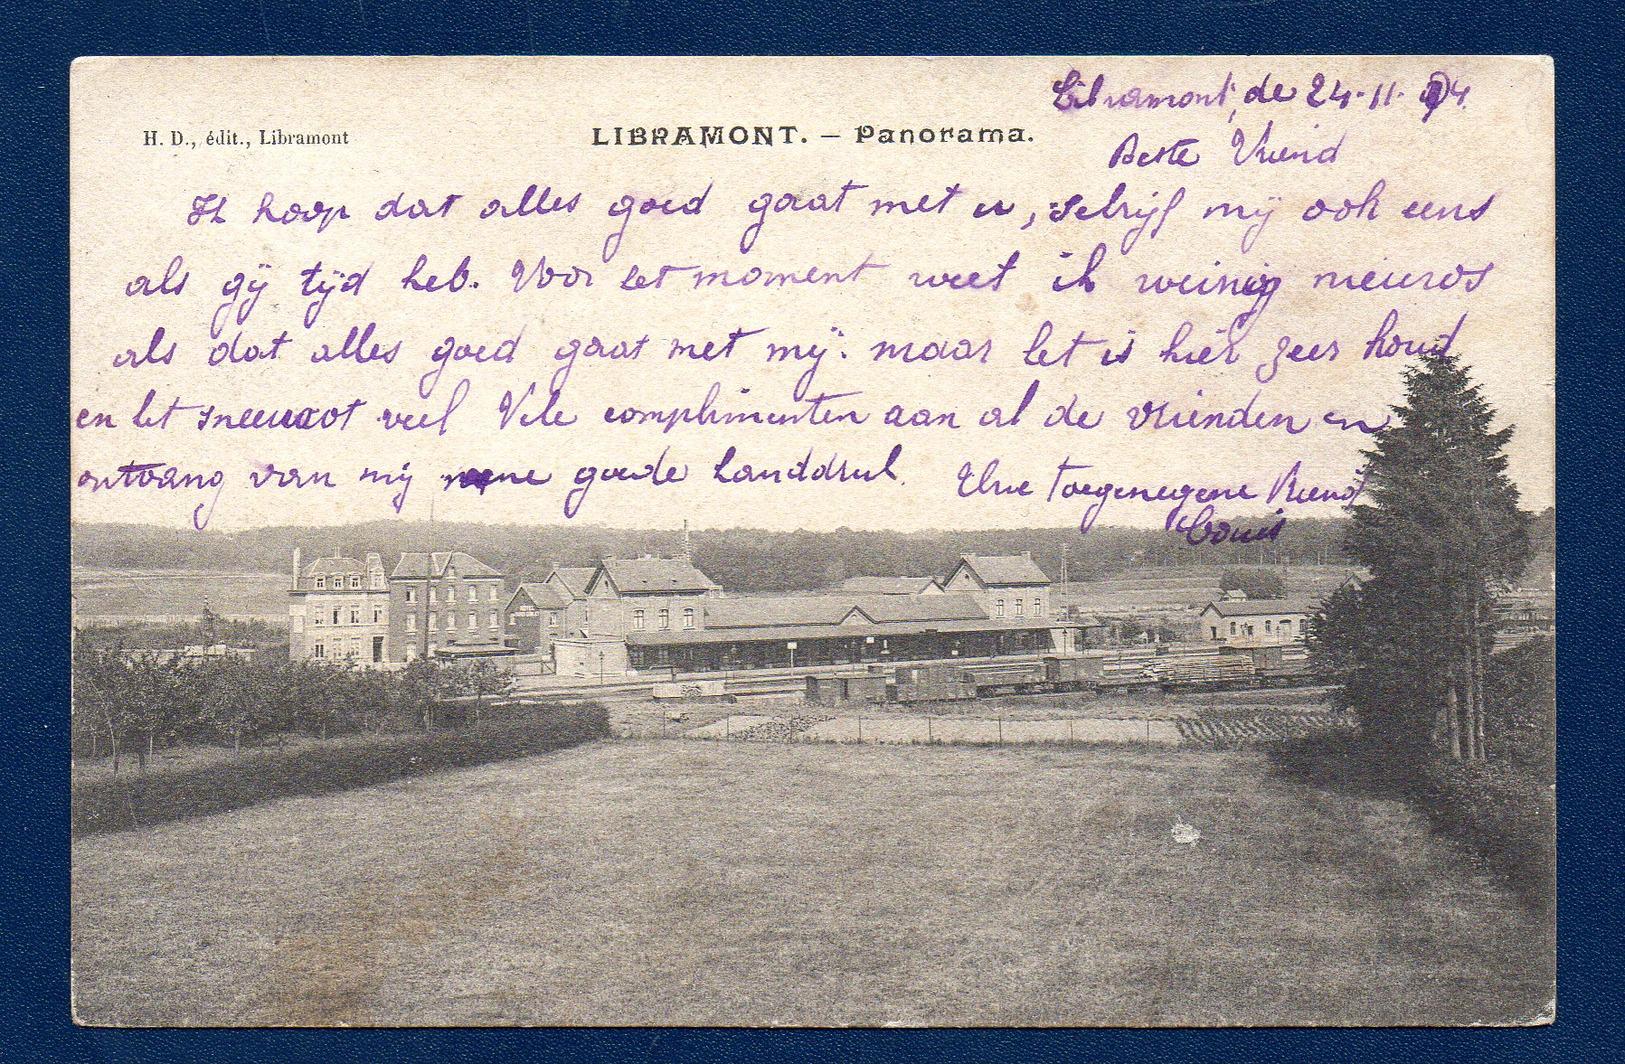 Libramont, de 24-11-04
H. D., édit., Libramont
LIBRAMONT. — Panorama.
Beste Vriend
Ik hoop dat alles goed gaat met u, schrijf mÿ ook eens
als gÿ tÿd heb. Voor het moment weet ik weinig nieuws
als dat alles goed gaat met mÿ. maar het is hier zeer koud
en het sneeuwt veel Vele complimenten aan al de vrienden en
ontvang van mÿ goede handdruk. Uwe Toegenegene Vriend
Louis